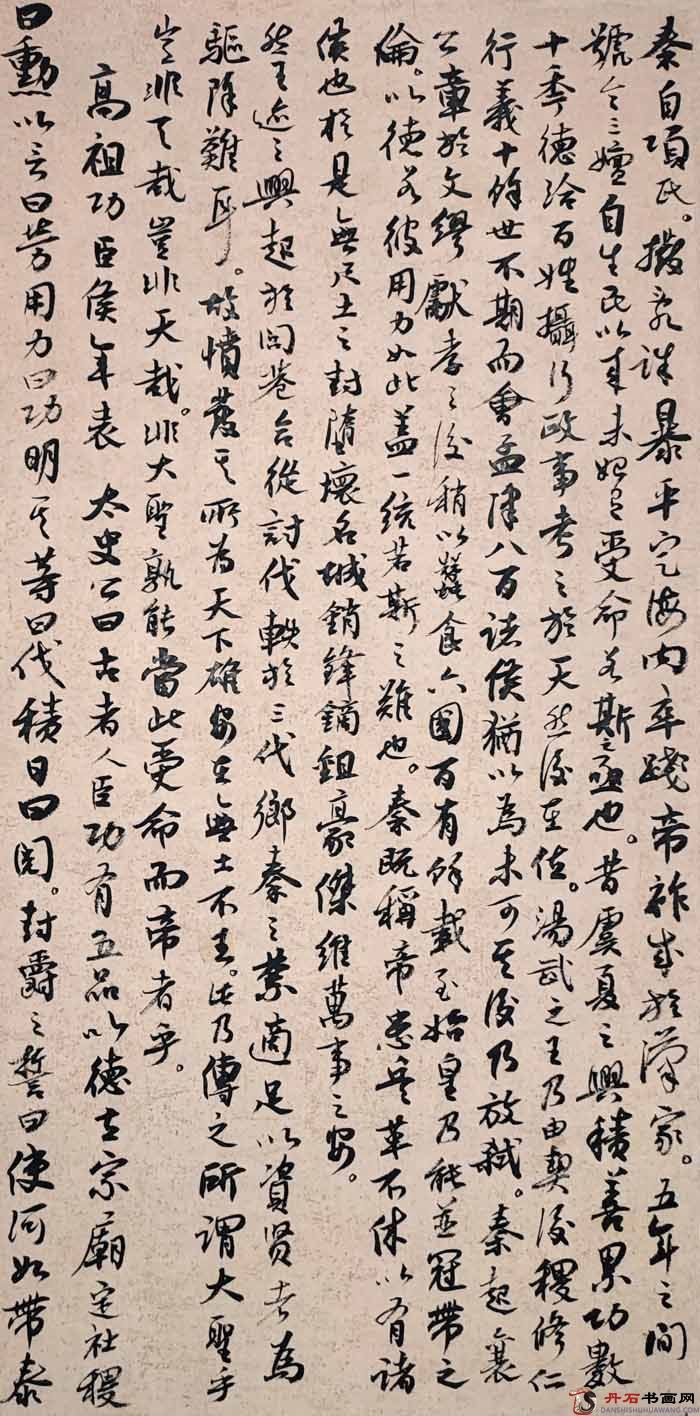 秦自項氏。撥亂誅暴平定海內卒踐帝祚成於漢家。五年之間
號令三嬗自生民以來未始有受命若斯之亟也。昔虞夏之興積善累功數
十年德洽百姓攝行政事考之於天然後在位。湯武之王乃由契後稷修仁
行義十餘世不期而會孟津八百諸侯猶以為未可其後乃放弒。秦起襄
公章於文繆獻孝之後稍以蠶食六國百有餘載至始皇乃能並冠帶之
倫。以德若彼用力如此蓋一統若斯之難也。秦既稱帝患兵革不休以有諸
侯也於是無尺土之封墮壞名城銷鋒鏑鉏豪傑維萬事之安。
然王迹之興起於閭巷合從討伐軼於三代鄉秦之禁適足以資賢者為
驅除難耳。故憤發其所為天下雄安在無土不王。此乃傳之所謂大聖乎
豈非天哉豈非天哉。非大聖孰能當此受命而帝者乎。
高祖功臣侯年表 太史公曰古者人臣功有五品以德立宗廟定社稷
曰勳以言曰勞用力曰功明其等曰伐積日曰閱。封爵之誓曰使河如帶泰
丹石书画网
DANSHISHUHUAWANG.COM